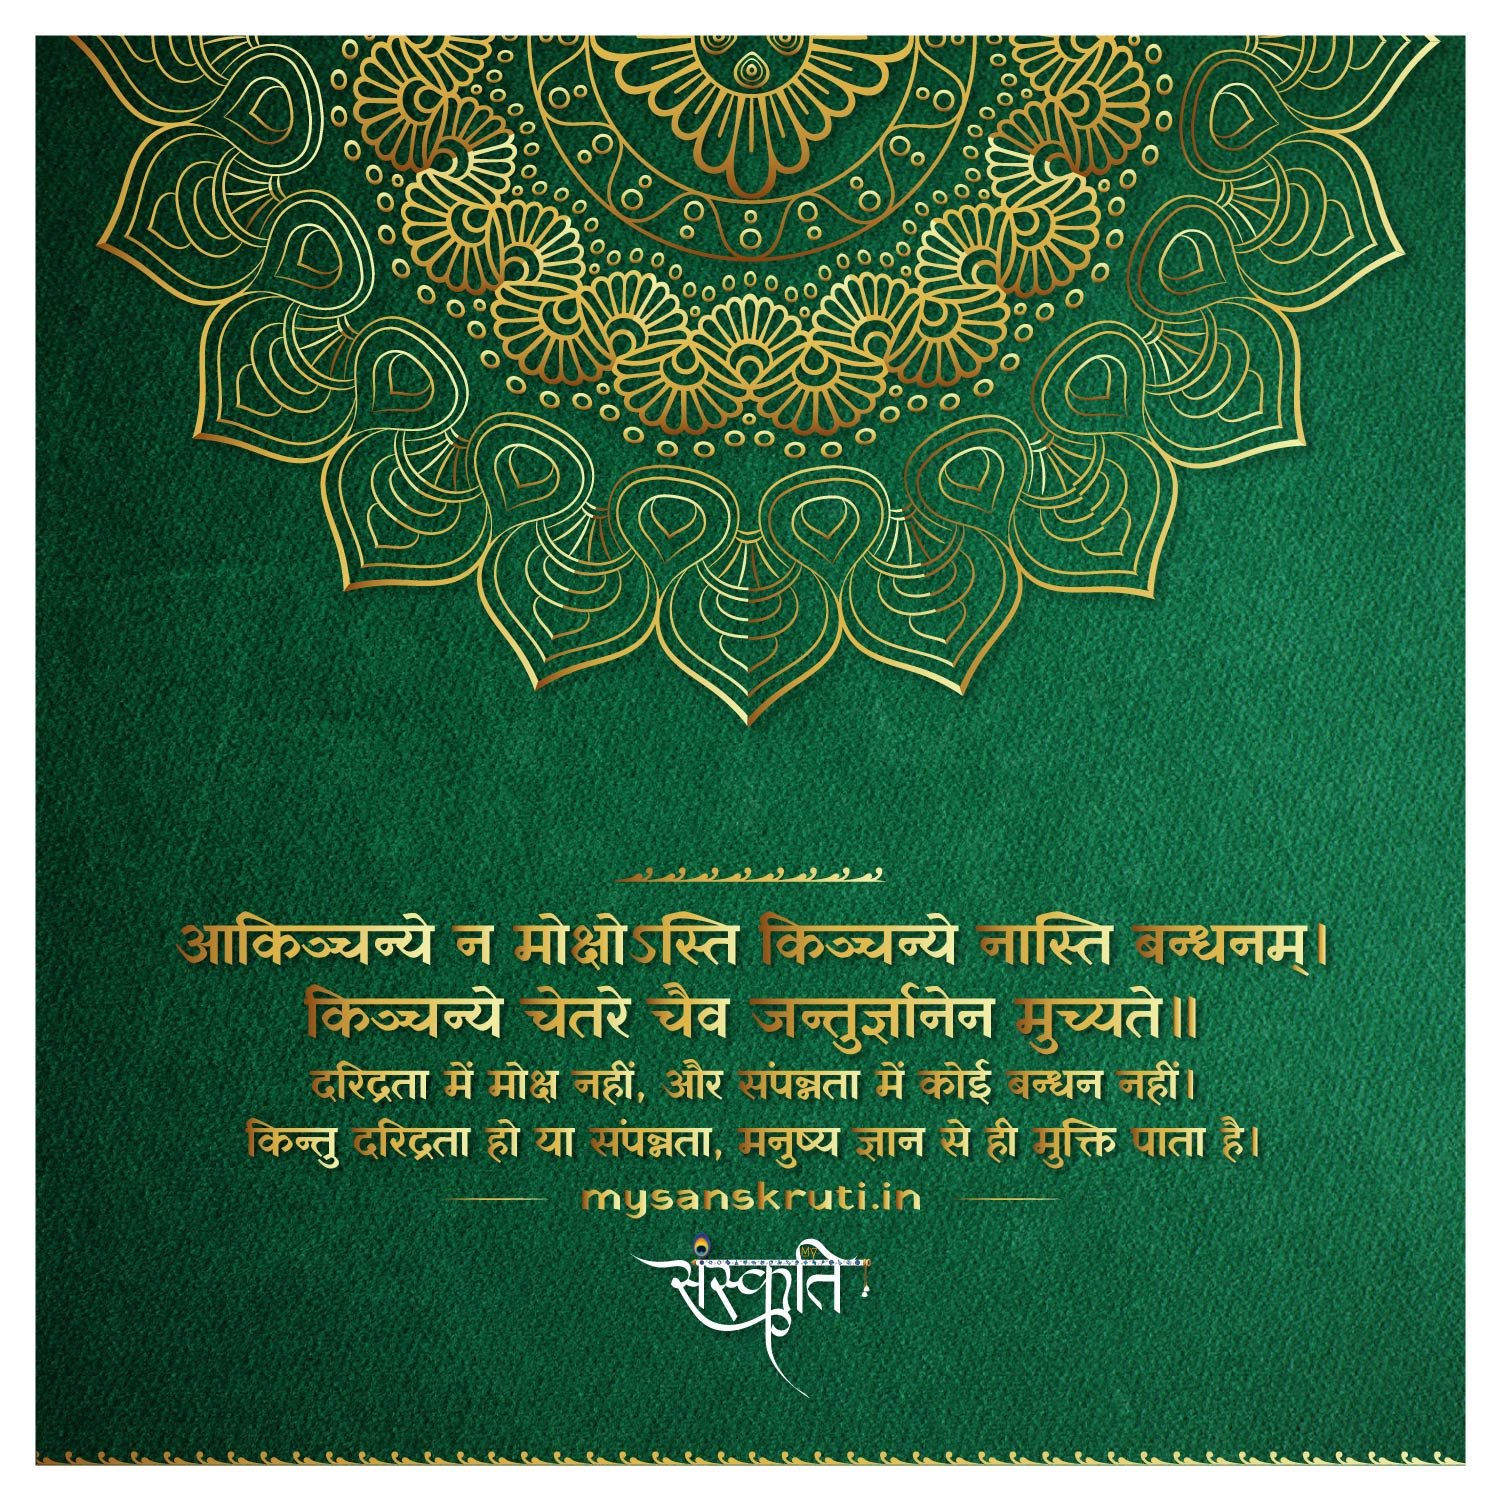 आकिञ्चन्ये न मोक्षोऽस्ति किञ्चन्ये नास्ति बन्धनम्।
किञ्चन्ये चेतरे चैव जन्तुर्ज्ञानेन मुच्यते॥
दरिद्रता में मोक्ष नहीं, और संपन्नता में कोई बन्धन नहीं।
किन्तु दरिद्रता हो या संपन्नता, मनुष्य ज्ञान से ही मुक्ति पाता है।
mysanskruti.in
My
संस्कृति